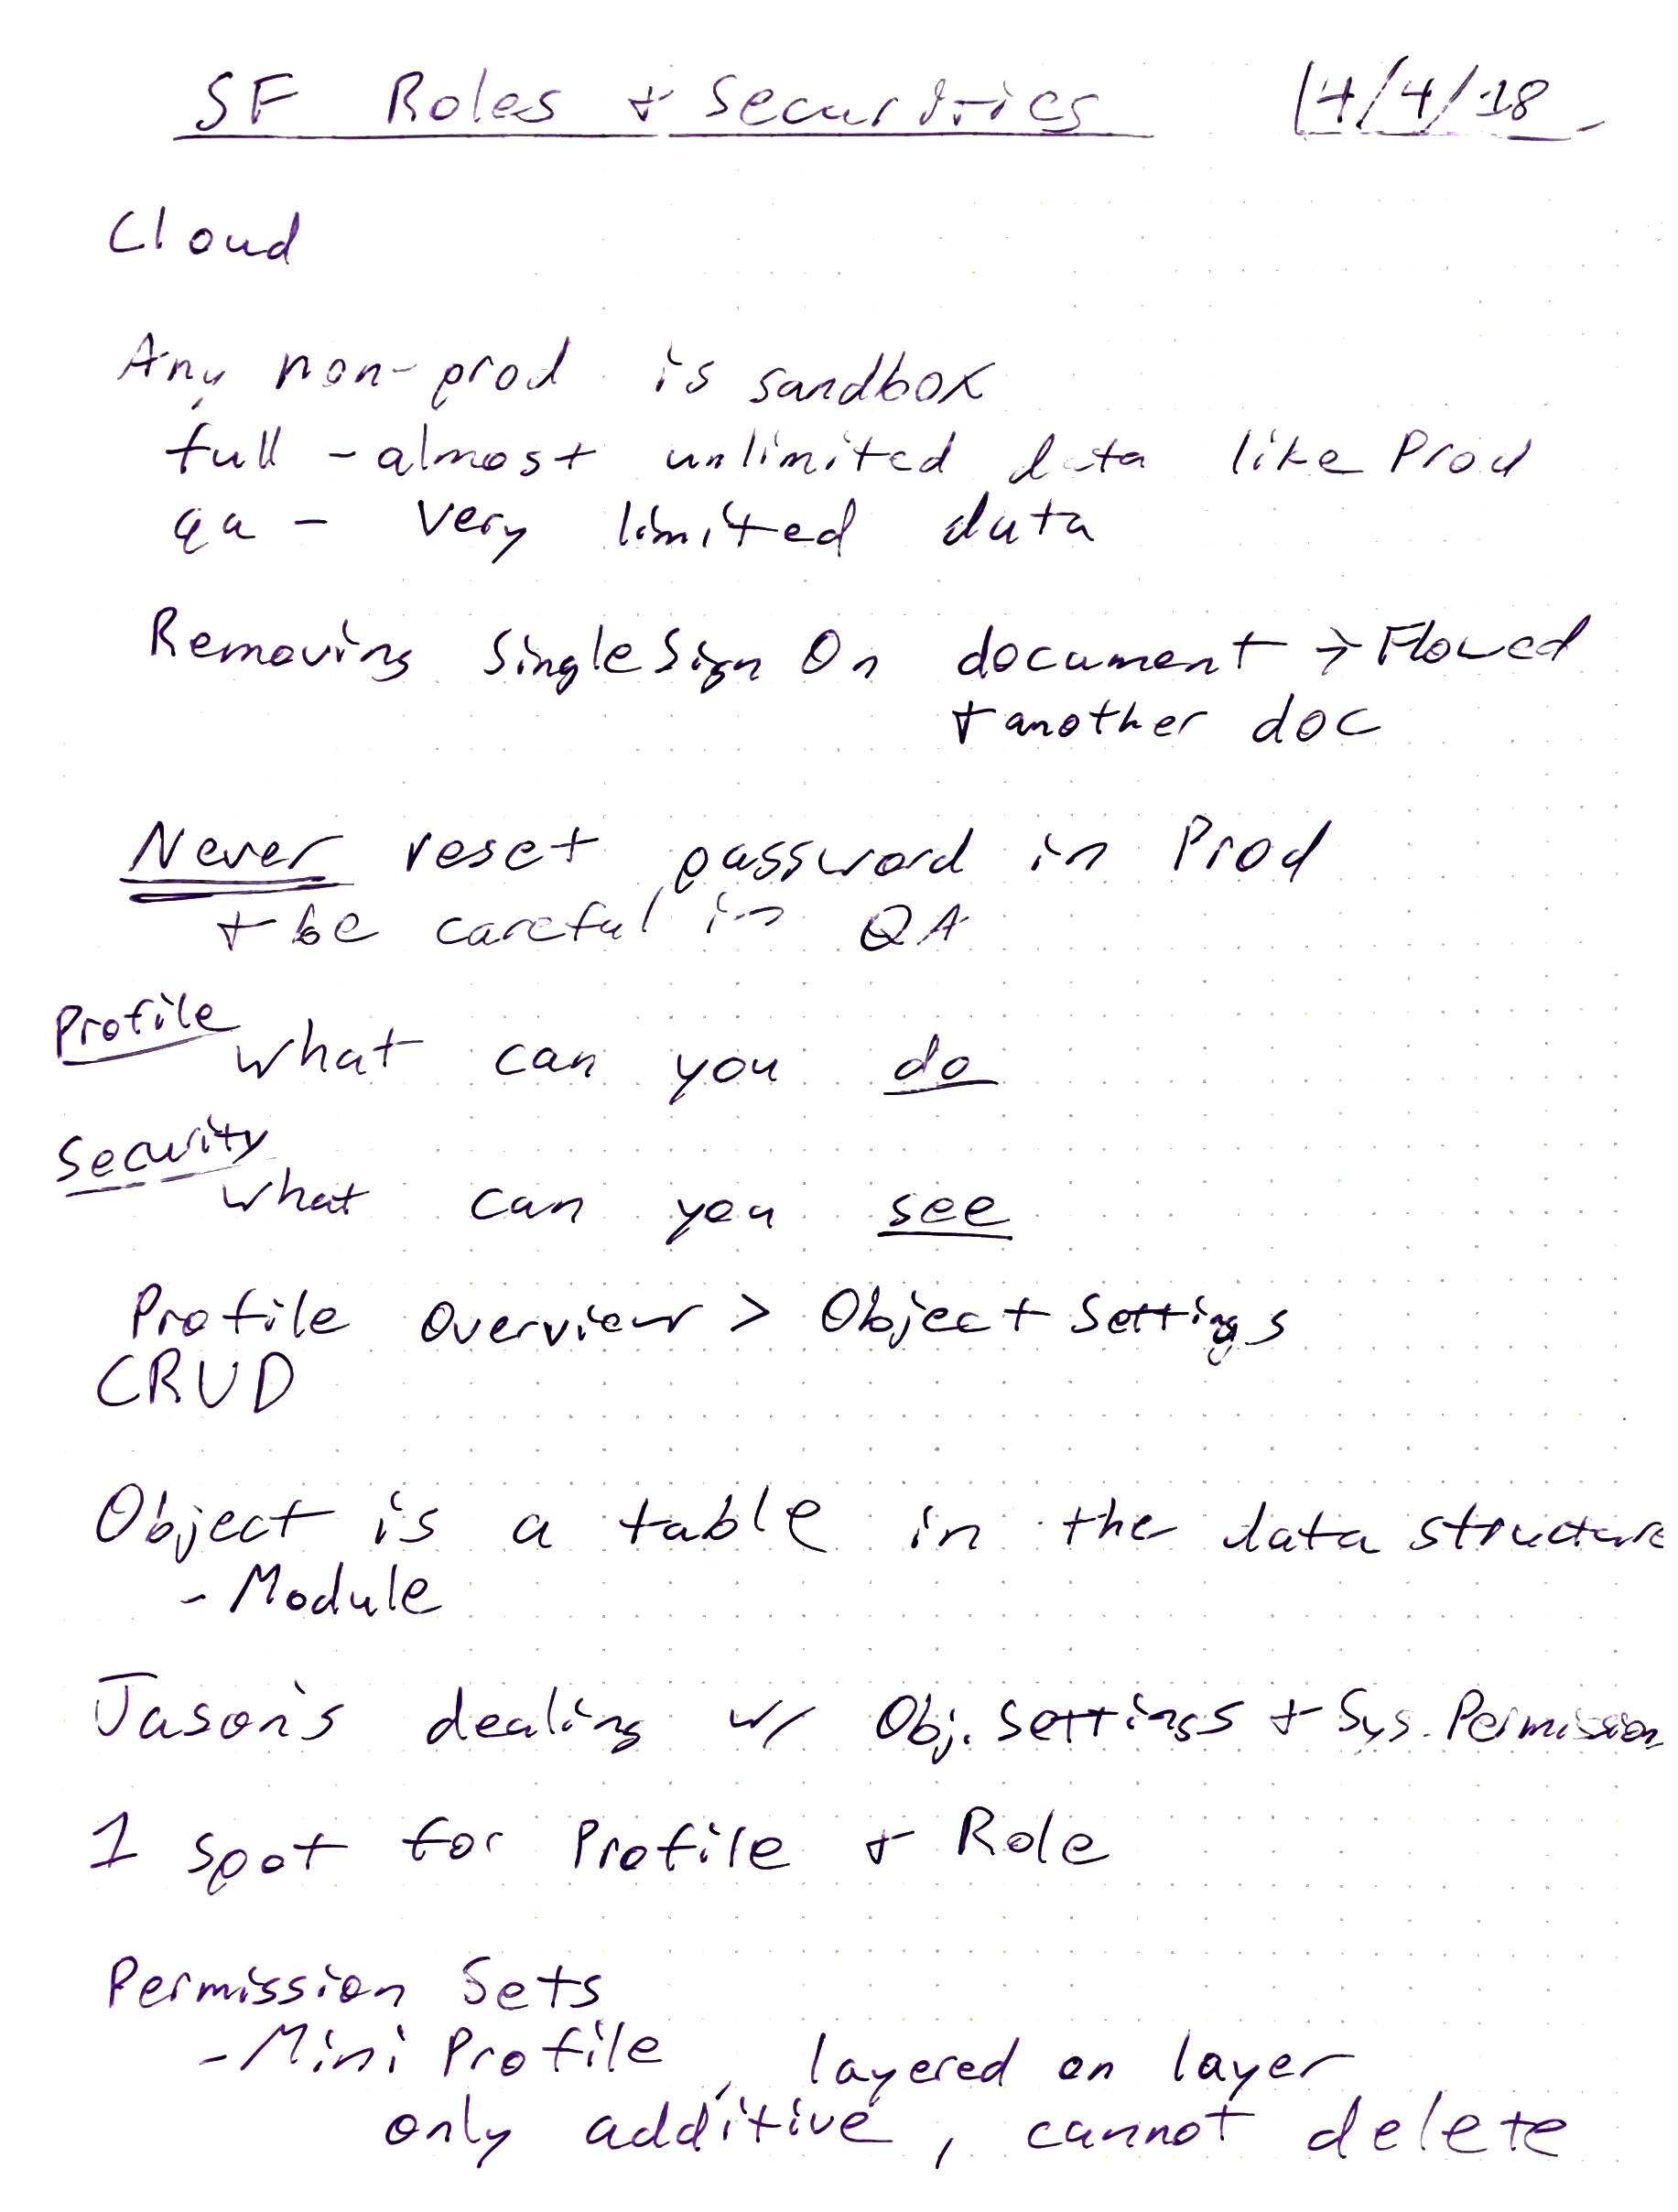 SF Roles + Securitics 4/4/18
Cloud
Any non-prod is sandbox
full - almost unlimited data like Prod
qa - very limited data
Removing Single Sign On document → Flowed
+ another doc
Never reset password in Prod
+ be careful in QA
Profile
what can you do
Security
what can you see
Profile Overview > Object Settings
CRUD
Object is a table in the data structure
- Module
Jason's dealing w/ Obj. Settings + Sys. Permission
1 spot for Profile + Role
Permission Sets
- Mini Profile, layered on layer
only additive, cannot delete